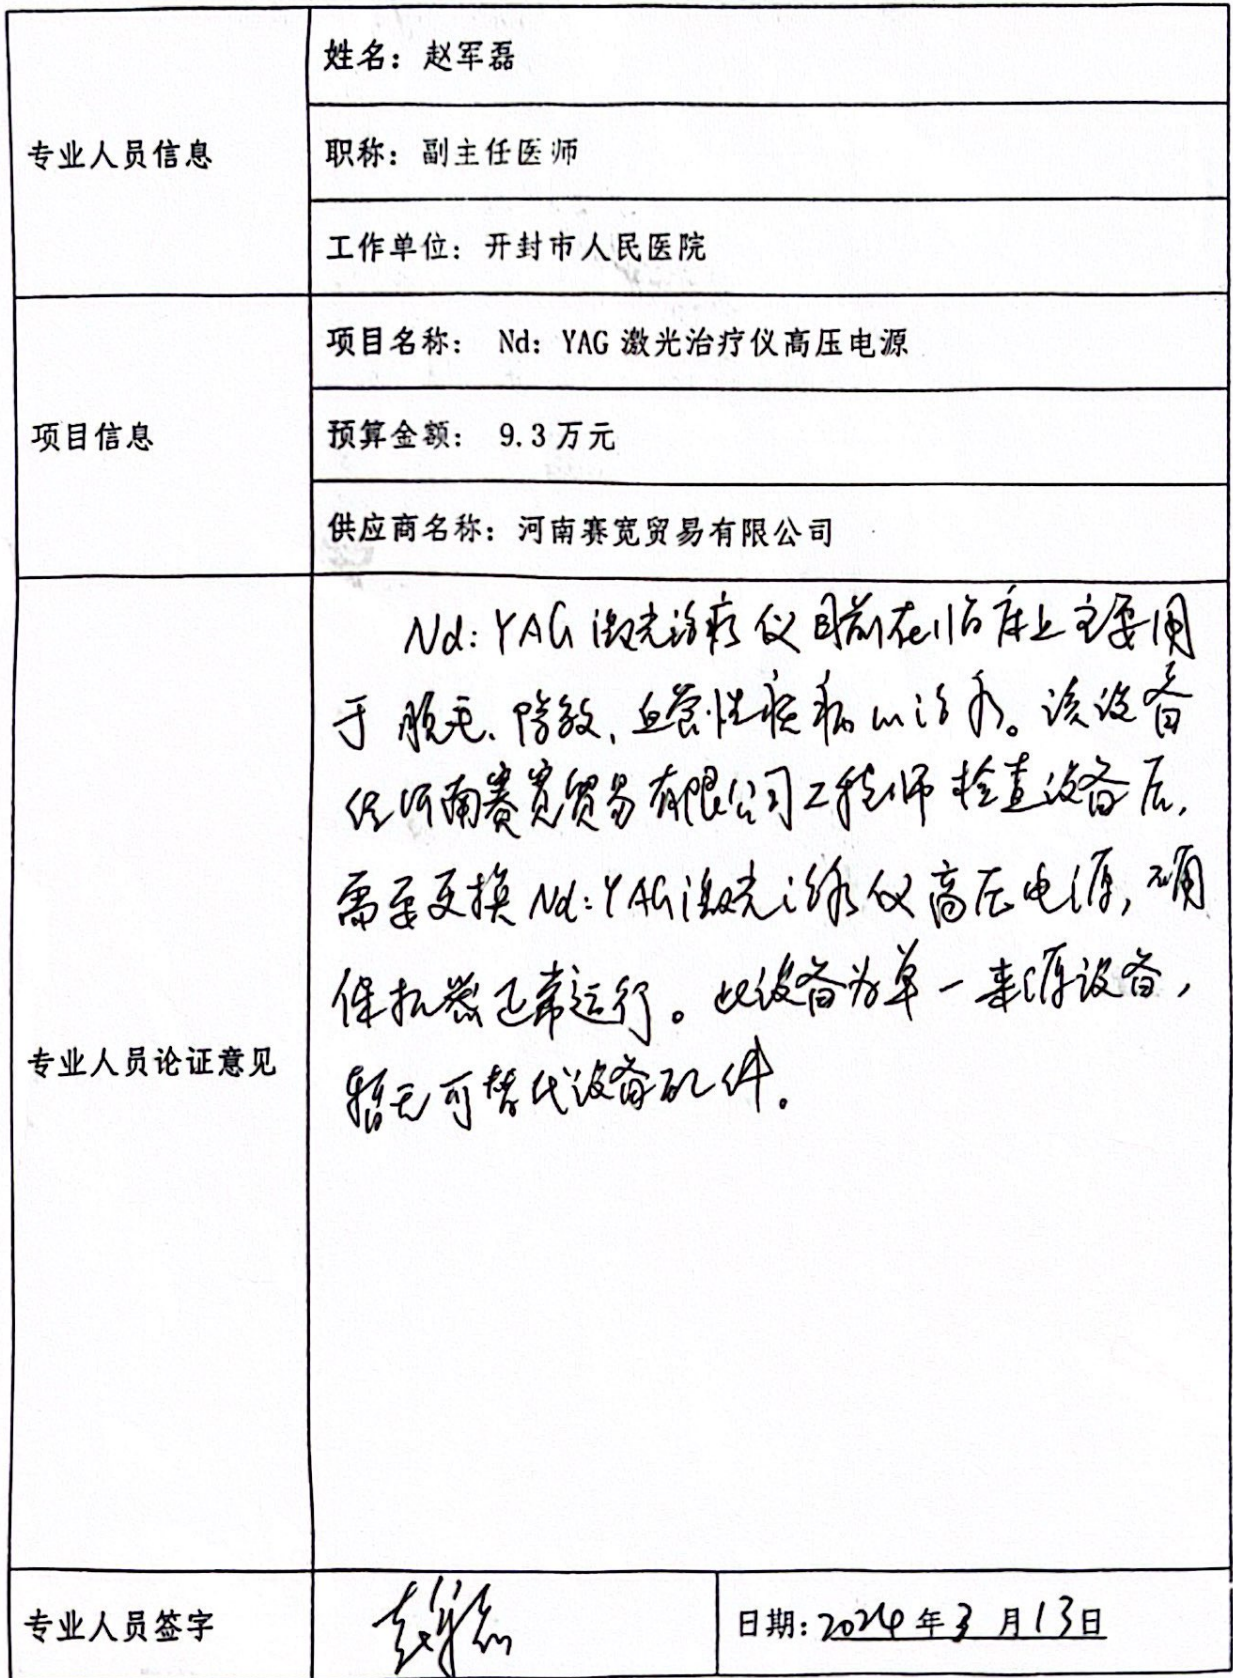 专业人员信息
姓名：赵军磊
职称：副主任医师
工作单位：开封市人民医院
项目信息
项目名称： Nd：YAG 激光治疗仪高压电源
预算金额： 9.3 万元
供应商名称：河南赛宽贸易有限公司
专业人员论证意见
Nd：YAG激光治疗仪目前在临床上主要用
于脱毛、嫩肤、血管性疾病的治疗。该设备
经河南赛宽贸易有限公司工程师检查设备后，
需要更换Nd：YAG激光治疗仪高压电源，确
保机器正常运行。此设备为单一来源设备，
暂无可替代设备配件。
专业人员签字
赵军磊
日期：2024年3月13日